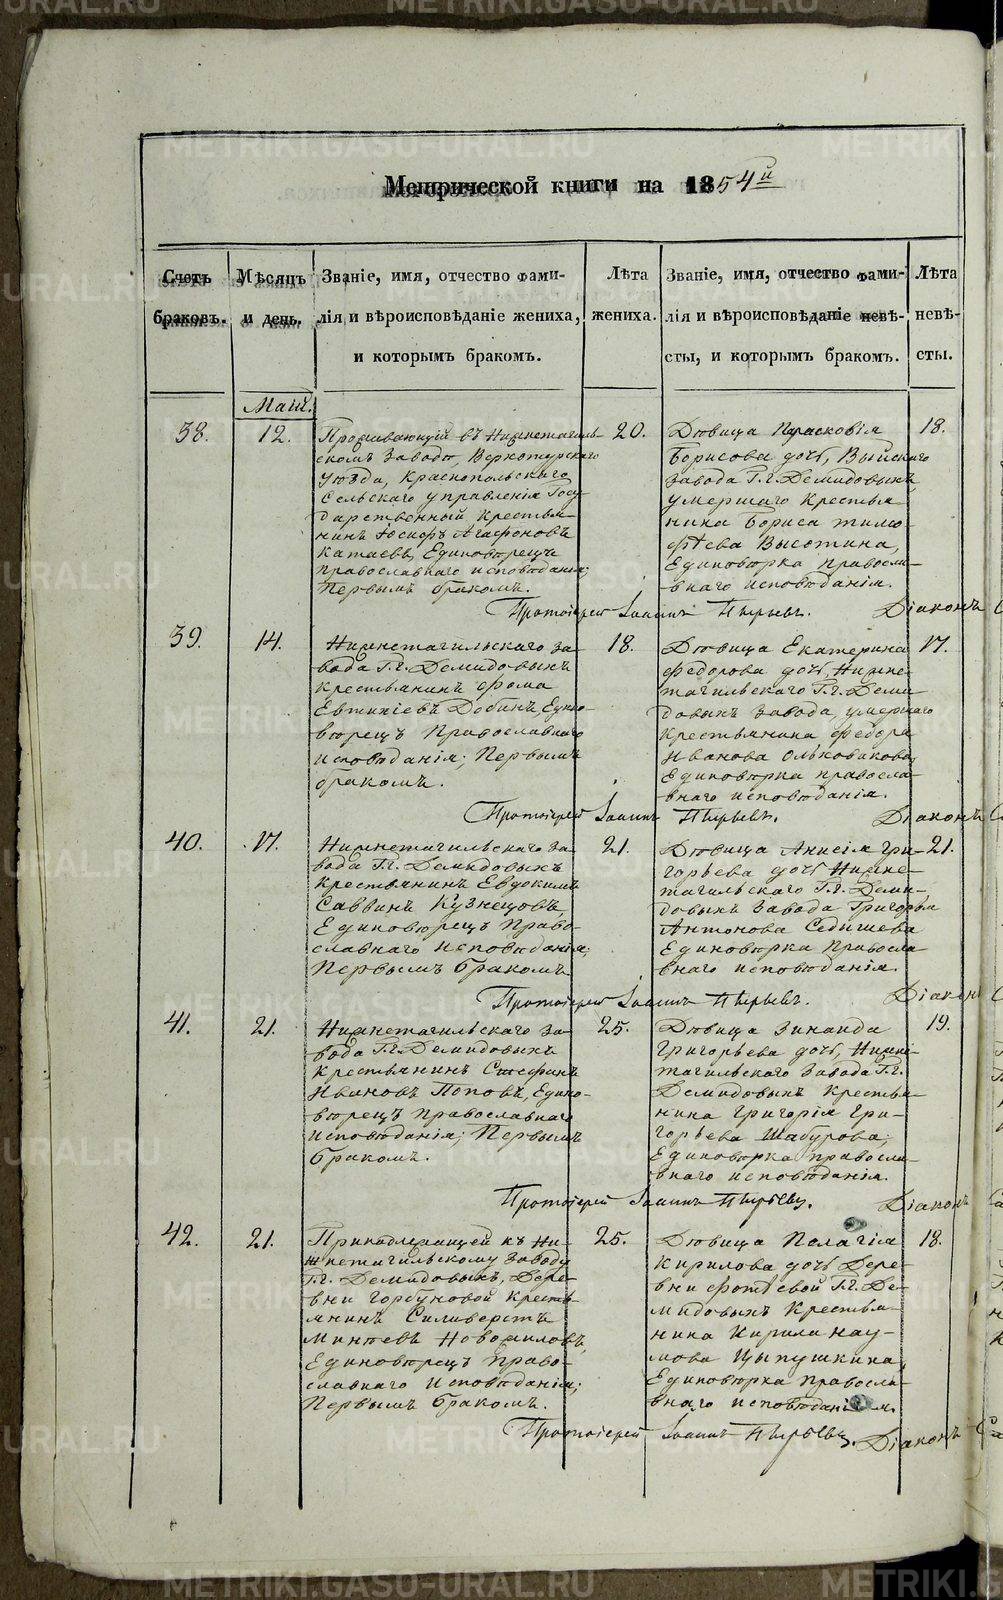 METRIKI.GASO-URAL.RU
Метрической книги на 1854й
Счетъ
браковъ.
Мѣсяцъ
и день.
Званіе, имя, отчество фами-
лія и вѣроисповѣданіе жениха,
и которымъ бракомъ.
Лѣта
жениха.
Званіе, имя, отчество фами-
лія и вѣроисповѣданіе невѣ-
сты, и которымъ бракомъ.
Лѣта
невѣ-
сты.
Маій.
38.
12.
Проживающій въ Нижнетагиль-
скомъ заводѣ, Верхотурскаго
уѣзда, Краснопольскаго
Сельскаго управленія Госу-
дарственный Крестья-
нинъ Іосифъ Агафоновъ
Катаевъ, Единовѣрецъ
православнаго исповѣданія;
Первымъ бракомъ.
20.
Дѣвица Парасковія
Борисова дочь, Выйскаго
завода Г.г. Демидовыхъ
умершаго Крестья-
нина Бориса Тимо-
фѣева Высотина,
Единовѣрка правосла-
внаго исповѣданія.
18.
Протоіерей Іоаннъ Пырьевъ.
Діаконъ
39.
14.
Нижнетагильскаго за-
вода Г.г. Демидовыхъ
крестьянинъ Фома
Евтихіевъ Добинъ, Едино-
вѣрецъ Православнаго
исповѣданія; Первымъ
бракомъ.
18.
Дѣвица Екатерина
Федорова дочь, Нижне-
тагильскаго Г.г. Деми-
довыхъ завода, умершаго
Крестьянина Федора
Иванова Ольховикова,
Единовѣрка правосла-
внаго исповѣданія.
17.
Протоіерей Іоаннъ Пырьевъ.
Діаконъ
40.
17.
Нижнетагильскаго за-
вода Г.г. Демидовыхъ
крестьянинъ Евдокимъ
Саввинъ Кузнецовъ,
Единовѣрецъ Право-
славнаго исповѣданія;
Первымъ бракомъ
21.
Дѣвица Анисія Гри-
горьева дочь Нижне-
тагильскаго Г.г. Деми-
довыхъ завода Григорья
Антонова Седышева
Единовѣрка Правосла-
внаго исповѣданія.
21.
Протоіерей Іоаннъ Пырьевъ.
Діаконъ
41.
21.
Нижнетагильскаго за-
вода Г.г. Демидовыхъ
крестьянинъ Стефанъ
Ивановъ Поповъ, Едино-
вѣрецъ православнаго
исповѣданія; Первымъ
бракомъ.
25.
Дѣвица Зинаида
Григорьева дочь, Нижне-
тагильскаго завода Г.г.
Демидовыхъ Крестья-
нина Григорія Гри-
горьева Шабурова,
Единовѣрка правосла-
внаго исповѣданія.
19.
Протоіерей Іоаннъ Пырьевъ.
Діаконъ
42.
21.
Принадлежащей къ Ни-
жнетагильскому заводу
Г.г. Демидовыхъ, Дере-
вни Горбуновой Кресть-
янинъ Силиверстъ
Минѣевъ Новожиловъ,
Единовѣрецъ Право-
славнаго исповѣданія;
Первымъ бракомъ.
25.
Дѣвица Пелагія
Кирилова дочь Дере-
вни Фотѣевой Г.г. Де-
мидовыхъ Крестья-
нина Кирила Нау-
мова Цыпушкина,
Единовѣрка правосла-
внаго исповѣданіем.
18.
Протоіерей Іоаннъ Пырьевъ.
Діаконъ